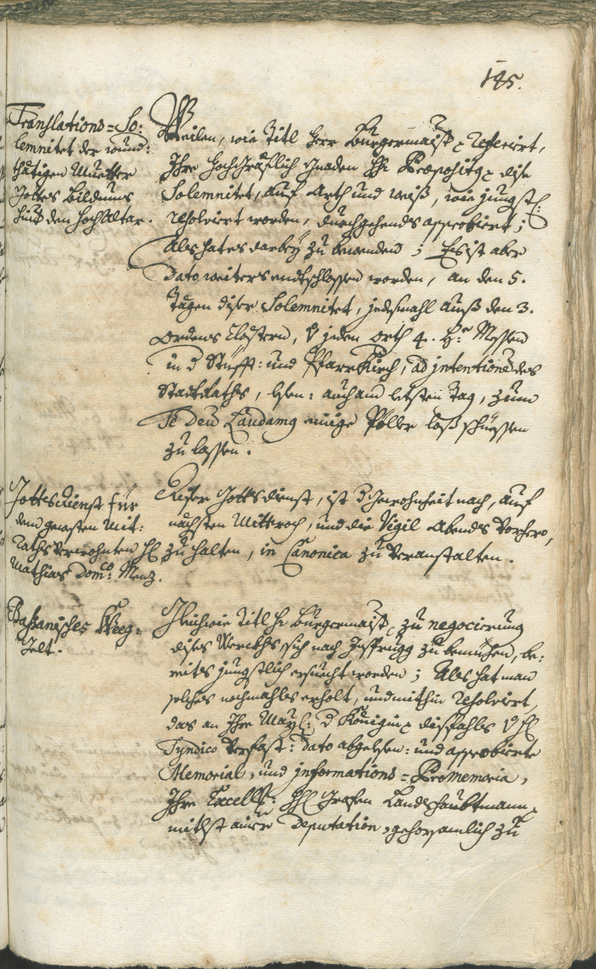 195.
Translations=So:
lemnitet der wund:
thätigen Muetter
Gottes Bildnus
hinder den Hochaltar.
Weilen, wie Titl Herr Burgermaist: referiert,
Ihro Hochgräflich Gnaden H: Præposit: dise
Solemnitet, auf Arth und weiß, wie jungst
resolviert worden, durchgehends approbiert;
Als hat es darbey zu bewenden; Es ist aber
dato weiters entschlossen worden, an den 5.
Tägen diser Solemnitet, jedesmahl auß den 3.
ordens Clöstern, jeden orth 4. H: Messen
in d Stüfft: und Pfarr Kirch, ad intentionê des
StattRaths, lesen: auch am lesten Tag, zum
Te Deû Laudamq einige Pöller loß schiessen
zu lassen.
Gottsdienst für
den gewesten Mit:
Raths Verwohnten H:
Mathias Dom: Menz.
Diser Gottsdienst, ist d gewohnheit nach, auf
nächsten Mittwoch, und die Vigil Abends vorhero,
zu halten, in Canonica zu veranstalten.
Baßanisches Weeg:
Gelt.
Gleichwie Titl H: Burgermaist: zu negocierung
dises Werckhs sich nach Ynsprugg zu bemühen, be:
reits jungstlich ersucht worden; Als hat man
solches nochmahls erholt, und mithin resolviert,
das an Ihro May: d Königin dissfahls H:
Syndico verfast: dato abgelesen: und approbierte
Memorial, und informations=Promemoria,
Ihro Excell: H: Grafen Landshaubtmann,
mitlst ainer Deputation, gehorsamlich zu